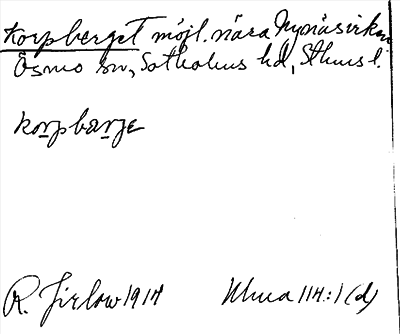 Korpberget möjl. nära Nynäsviken
Ösmo sn, Sotholms hd, Sthms l.
korpbarje
R. Jirlow 1917 Uhua 114:1 (d)